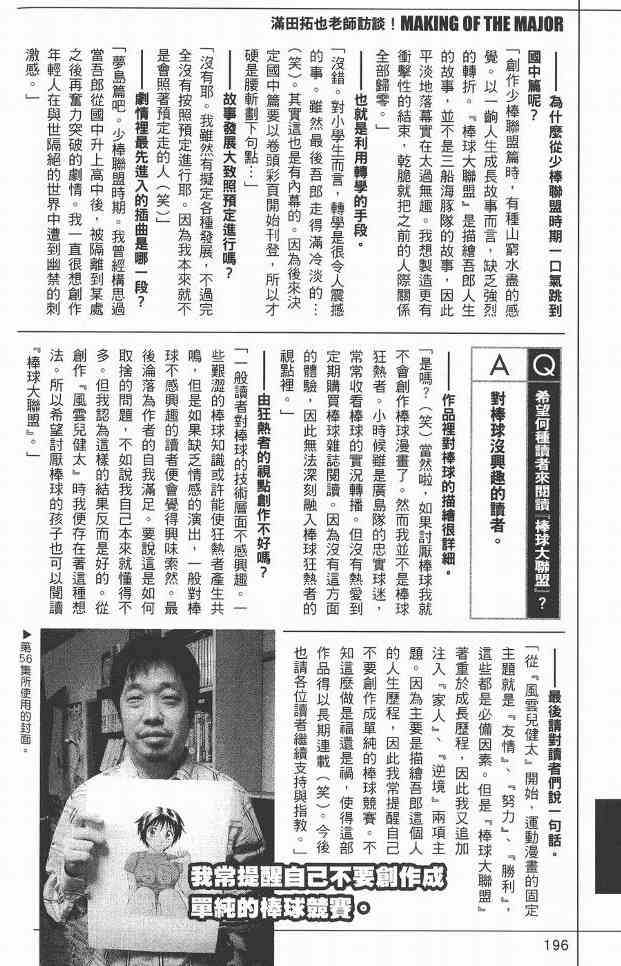 滿田拓也老師訪談！MAKING OF THE MAJOR
——為什麼從少棒聯盟時期一口氣跳到
國中篇呢？
「創作少棒聯盟篇時，有種山窮水盡的感
覺。以一齣人生成長故事而言，缺乏強烈
的轉折。『棒球大聯盟』是描繪吾郎人生
的故事，並不是三船海豚隊的故事，因此
平淡地落幕實在太過無趣。我想製造更有
衝擊性的結束，乾脆就把之前的人際關係
全部歸零。」
——也就是利用轉學的手段。
「沒錯。對小學生而言，轉學是很令人震撼
的事。雖然最後吾郎走得滿冷淡的…
（笑）。其實這也是有內幕的。因為後來決
定國中篇要以卷頭彩頁開始刊登，所以才
硬是腰斬劃下句點…」
——故事發展大致照預定進行嗎？
「沒有耶。我雖然有擬定各種發展，不過完
全沒有按照預定進行耶。因為我本來就不
是會照著預定走的人（笑）」
——劇情裡最先進入的插曲是哪一段？
「夢島篇吧。少棒聯盟時期。我曾經構思過
當吾郎從國中升上高中後，被隔離到某處
之後再奮力突破的劇情。我一直很想創作
年輕人在與世隔絕的世界中遭到幽禁的刺
激感。」
Q 希望何種讀者來閱讀『棒球大聯盟』？
A 對棒球沒興趣的讀者。
——作品裡對棒球的描繪很詳細。
「是嗎？（笑）當然啦，如果討厭棒球我就
不會創作棒球漫畫了。然而我並不是棒球
狂熱者。小時候雖是廣島隊的忠實球迷，
常常收看棒球的實況轉播。但沒有熱愛到
定期購買棒球雜誌閱讀。因為沒有這方面
的體驗，因此無法深刻融入棒球狂熱者的
視點裡。」
——由狂熱者的視點創作不好嗎？
「一般讀者對棒球的技術層面不感興趣。一
些艱澀的棒球知識或許能使狂熱者產生共
鳴，但是如果缺乏情感的演出，一般對棒
球不感興趣的讀者便會覺得興味索然。最
後淪落為作者的自我滿足。要說這是如何
取捨的問題，不如說我自己本來就懂得不
多。但我認為這樣的結果反而是好的。從
創作『風雲兒健太』時我便存在著這種想
法。所以希望討厭棒球的孩子也可以閱讀
『棒球大聯盟』。」
——最後請對讀者們說一句話。
「從『風雲兒健太』開始，運動漫畫的固定
主題就是『友情』、『努力』、『勝利』，
這些都是必備因素。但是『棒球大聯盟』
著重於成長歷程，因此我又追加
注入『家人』、『逆境』兩項主
題。因為主要是描繪吾郎這個人
的人生歷程，因此我常提醒自己
不要創作成單純的棒球競賽。不
知這麼做是福還是禍，使得這部
作品得以長期連載（笑）。今後
也請各位讀者繼續支持與指教。」
▶第56集所使用的封面。
我常提醒自己不要創作成
單純的棒球競賽。
196